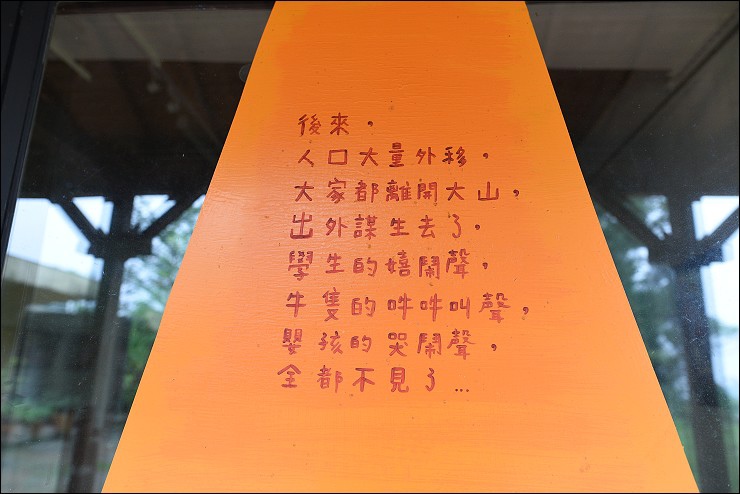 後來，
人口大量外移，
大家都離開大山，
出外謀生去了，
學生的嬉鬧聲，
牛隻的吽吽叫聲，
嬰孩的哭鬧聲，
全都不見了...